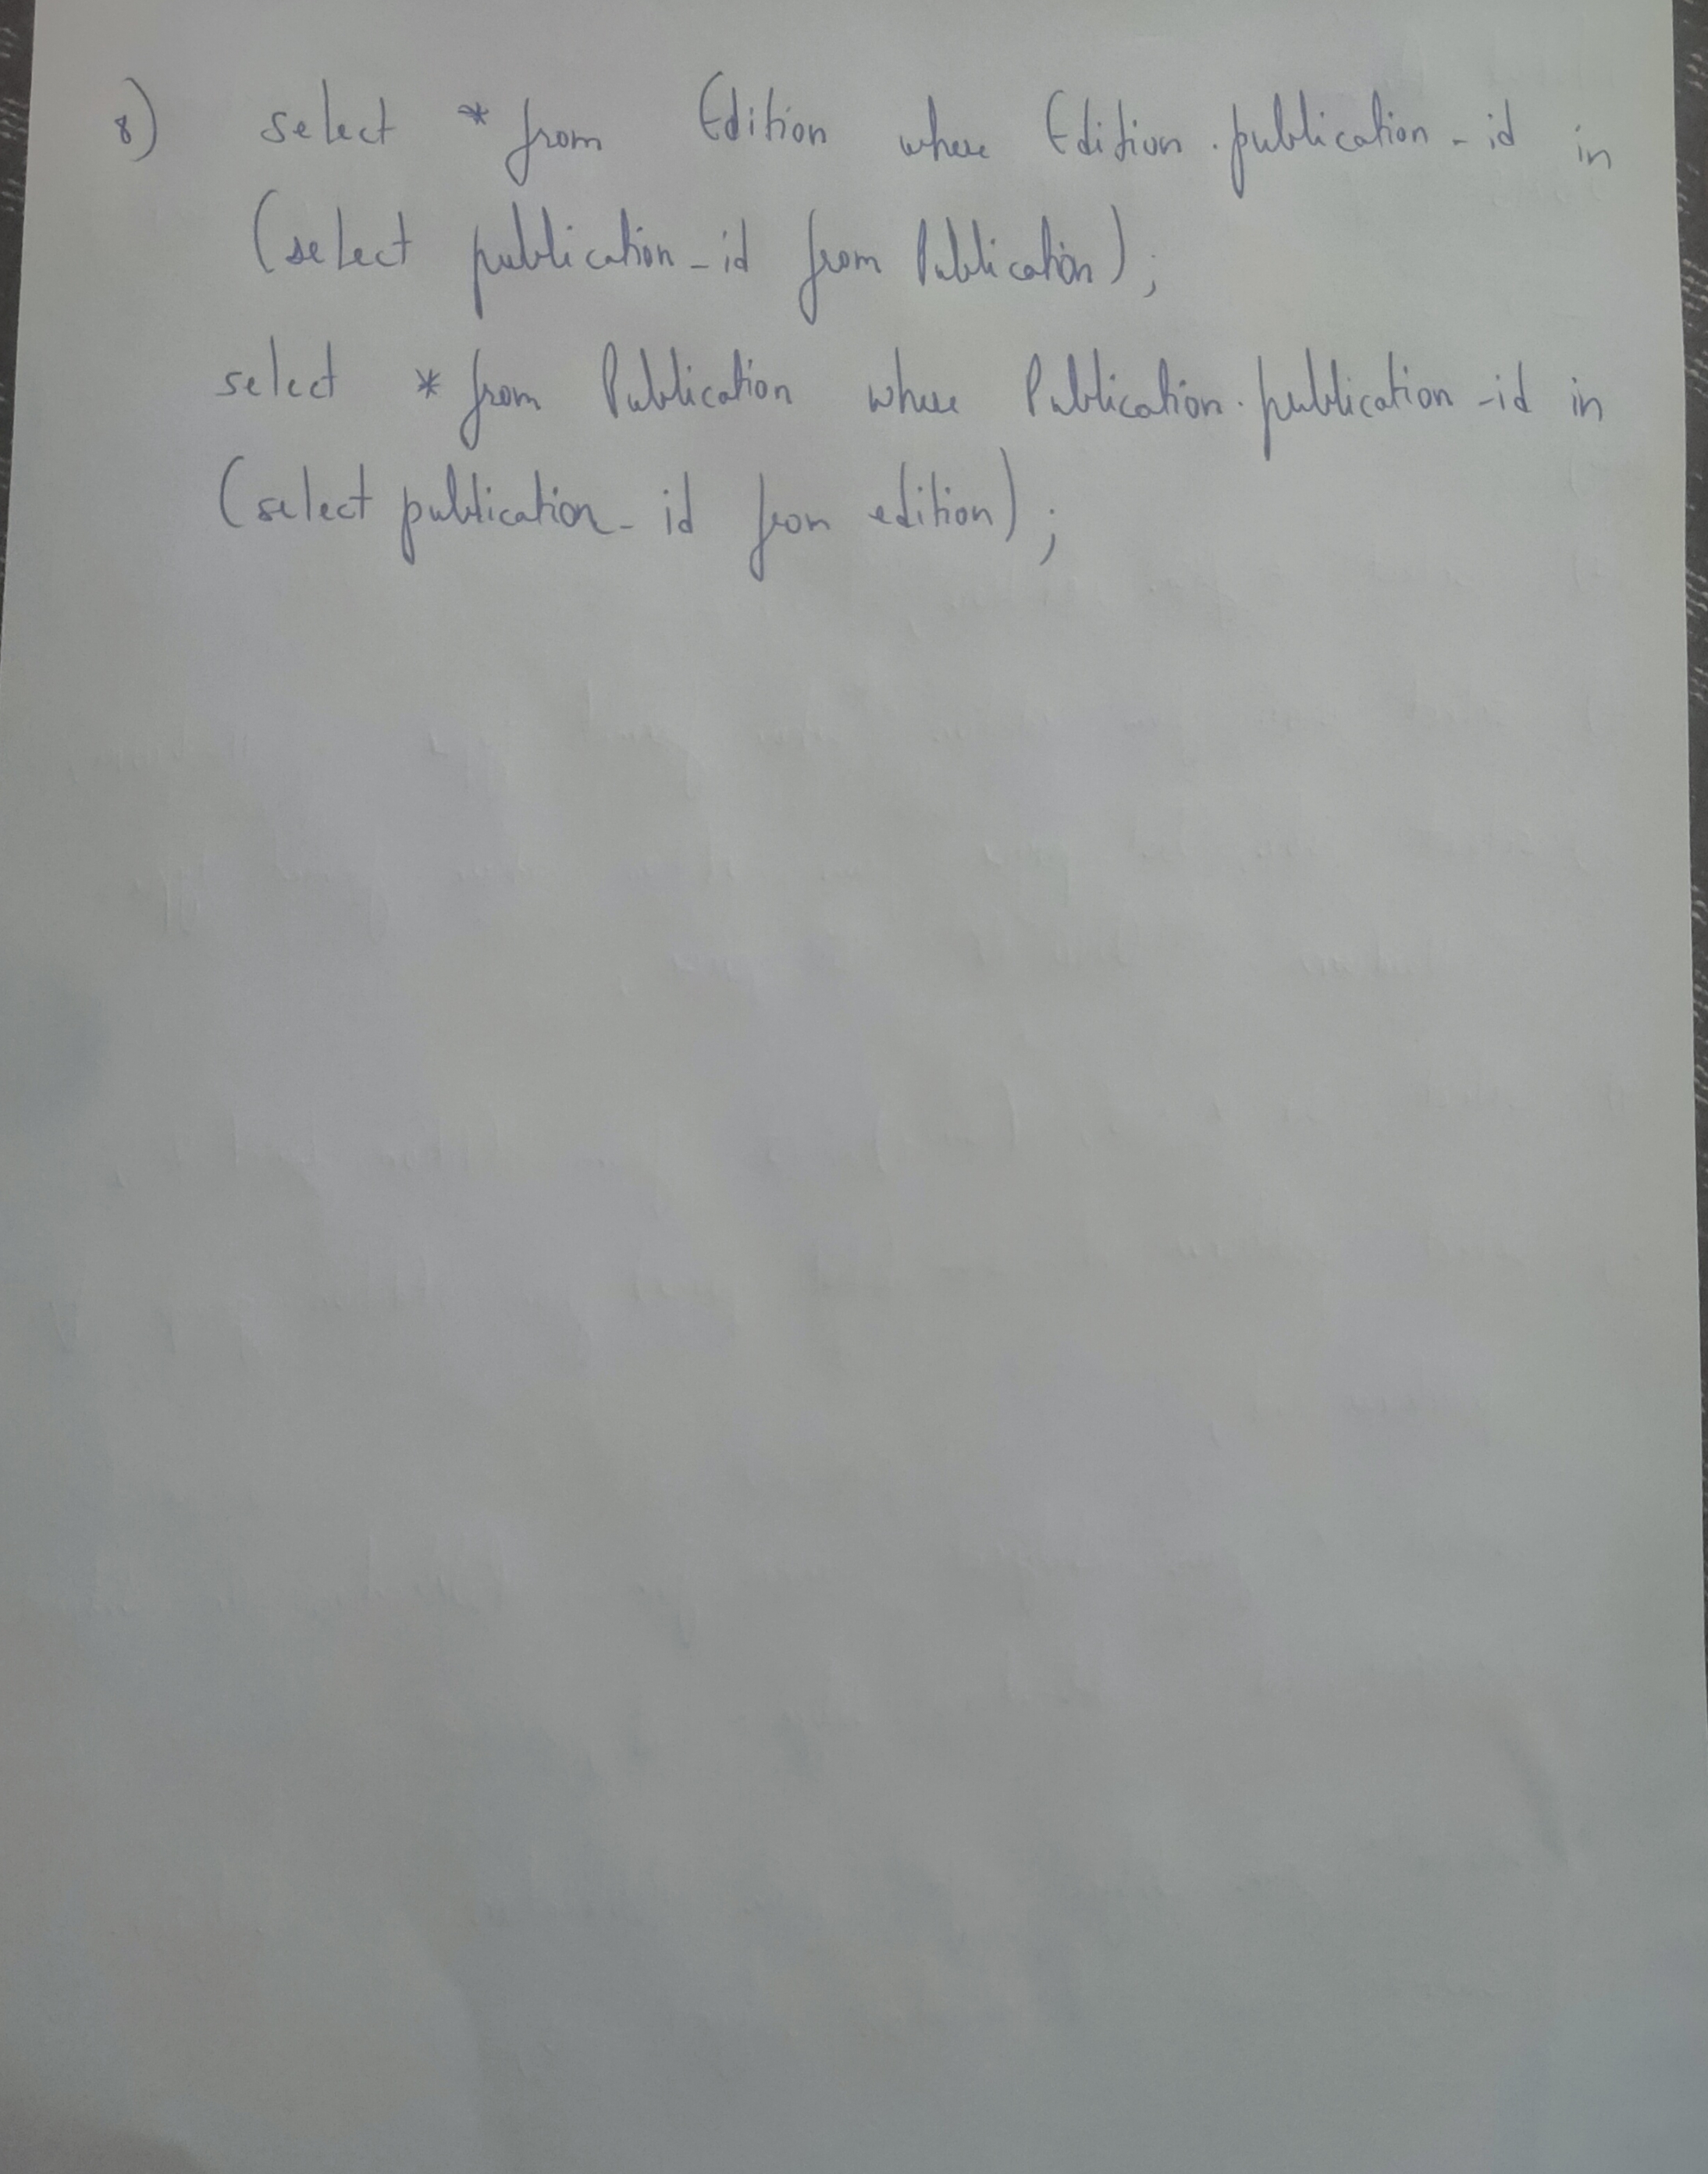 8) select * from Edition where Edition.publication_id in
(select publication_id from Publication);
select * from Publication where Publication.publication_id in
(select publication_id from edition);